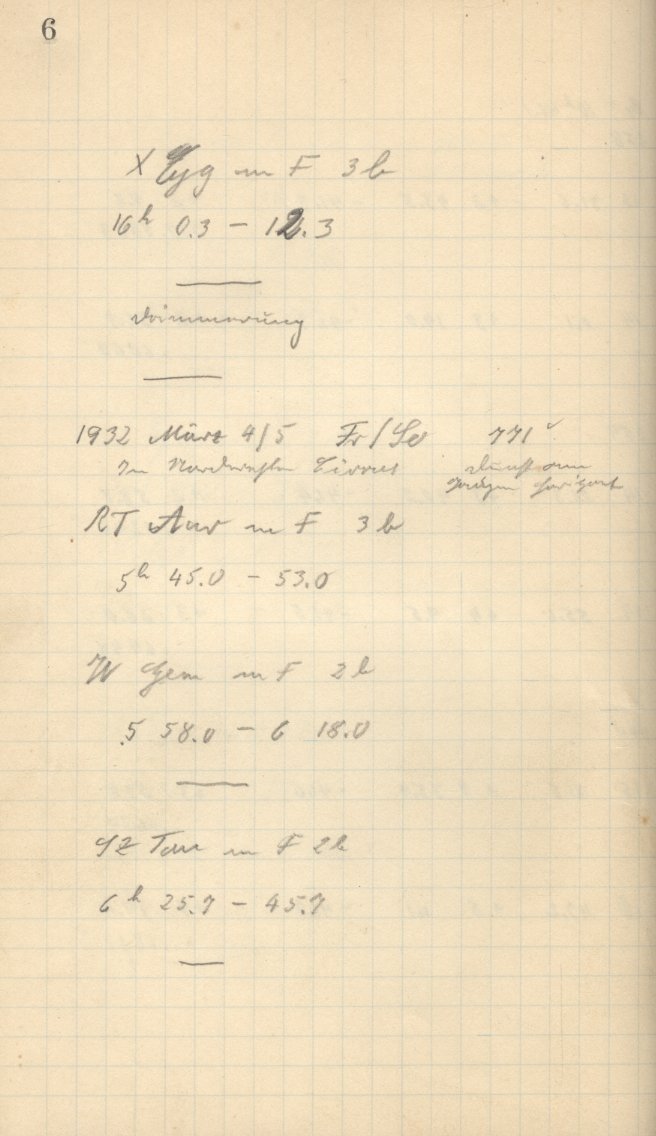 6
X Cyg m F 3b
16h 0.3 – 12.3
Dämmerung
1932 März 4/5 Fr/So 771
Im Nordwesten Cirrus Dunst am
ganzen Horizont
RT Aur m F 3b
5h 45.0 – 53.0
W Gem m F 2b
5 58.0 – 6 18.0
SZ Tau m F 2b
6h 25.7 – 45.7